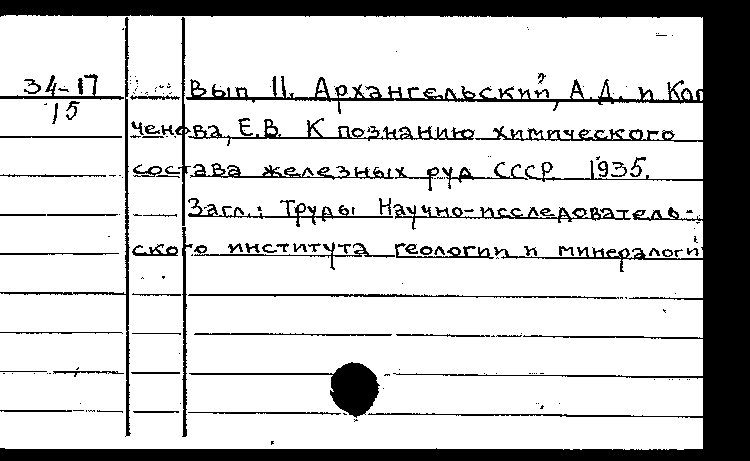 34-17
15
Вып. 11. Архангельский, А.Д. и Коп
ченова, Е.В. К познанию химического
состава железных руд СССР. 1935.
Загл.: Труды Научно-исследователь-
ского института геологии и минералоги